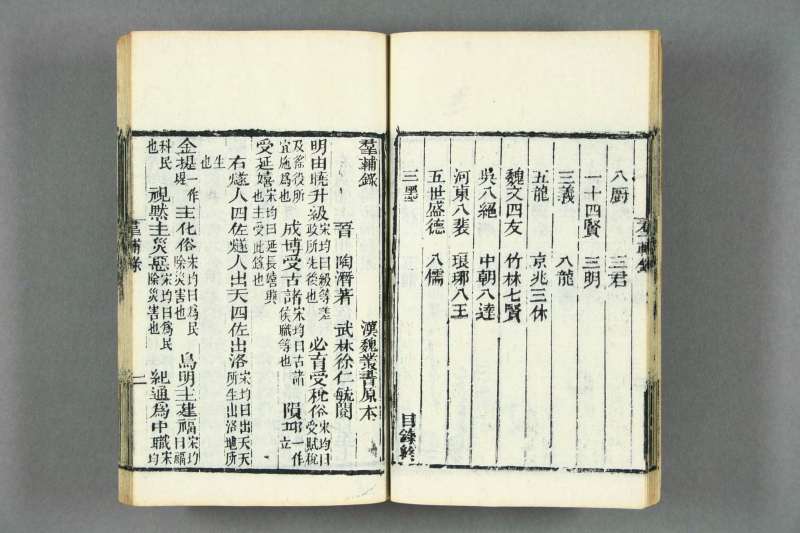 八廚　三君
一十四賢　三明
三義　八龍
五龍　京兆三休
魏文四友　竹林七賢
吳八絕　中朝八達
河東八裴　琅琊八王
五世盛德　八儒
三墨
目錄終
羣輔錄
羣輔錄　漢魏叢書原本
晉　陶潛著　武林徐仁毓閱
明由曉升級宋均曰級等差政所先後也　必育受稅俗宋均曰受賦稅
及徭役所宜施爲也　成博受古諸宋均曰古諸侯職等也　隕丘一作立
受延嬉宋均曰延長嬉興也主受此籙也
右燧人四佐燧人出天四佐出洛宋均曰出天天所生出洛地所
生也
金提一作堤主化俗宋均曰爲民除災害也　鳥明主建福宋均曰福
利民也　視默主災惡宋均曰爲民除災害也　紀通爲中職宋均
羣輔錄